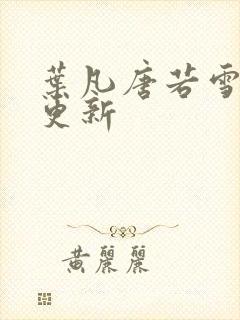 葉凡唐若雪
更新
黃麗麗